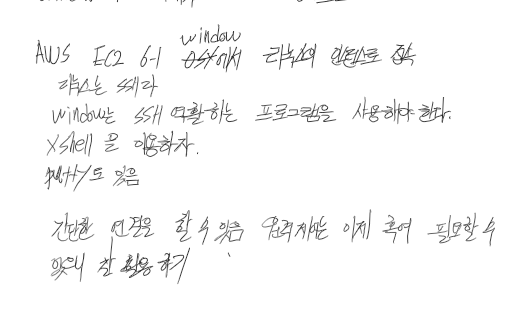 window
AWS EC2 6-1 에서 리눅스의 인스턴스로 접속
리눅스는 SSH라
window는 SSH 역활하는 프로그램을 사용해야 한다.
Xshell 을 이용하자.
putty도 있음
간단한 연결을 할 수 있음 이제 혹여 필요할 수
있으니 잘 활용 하기